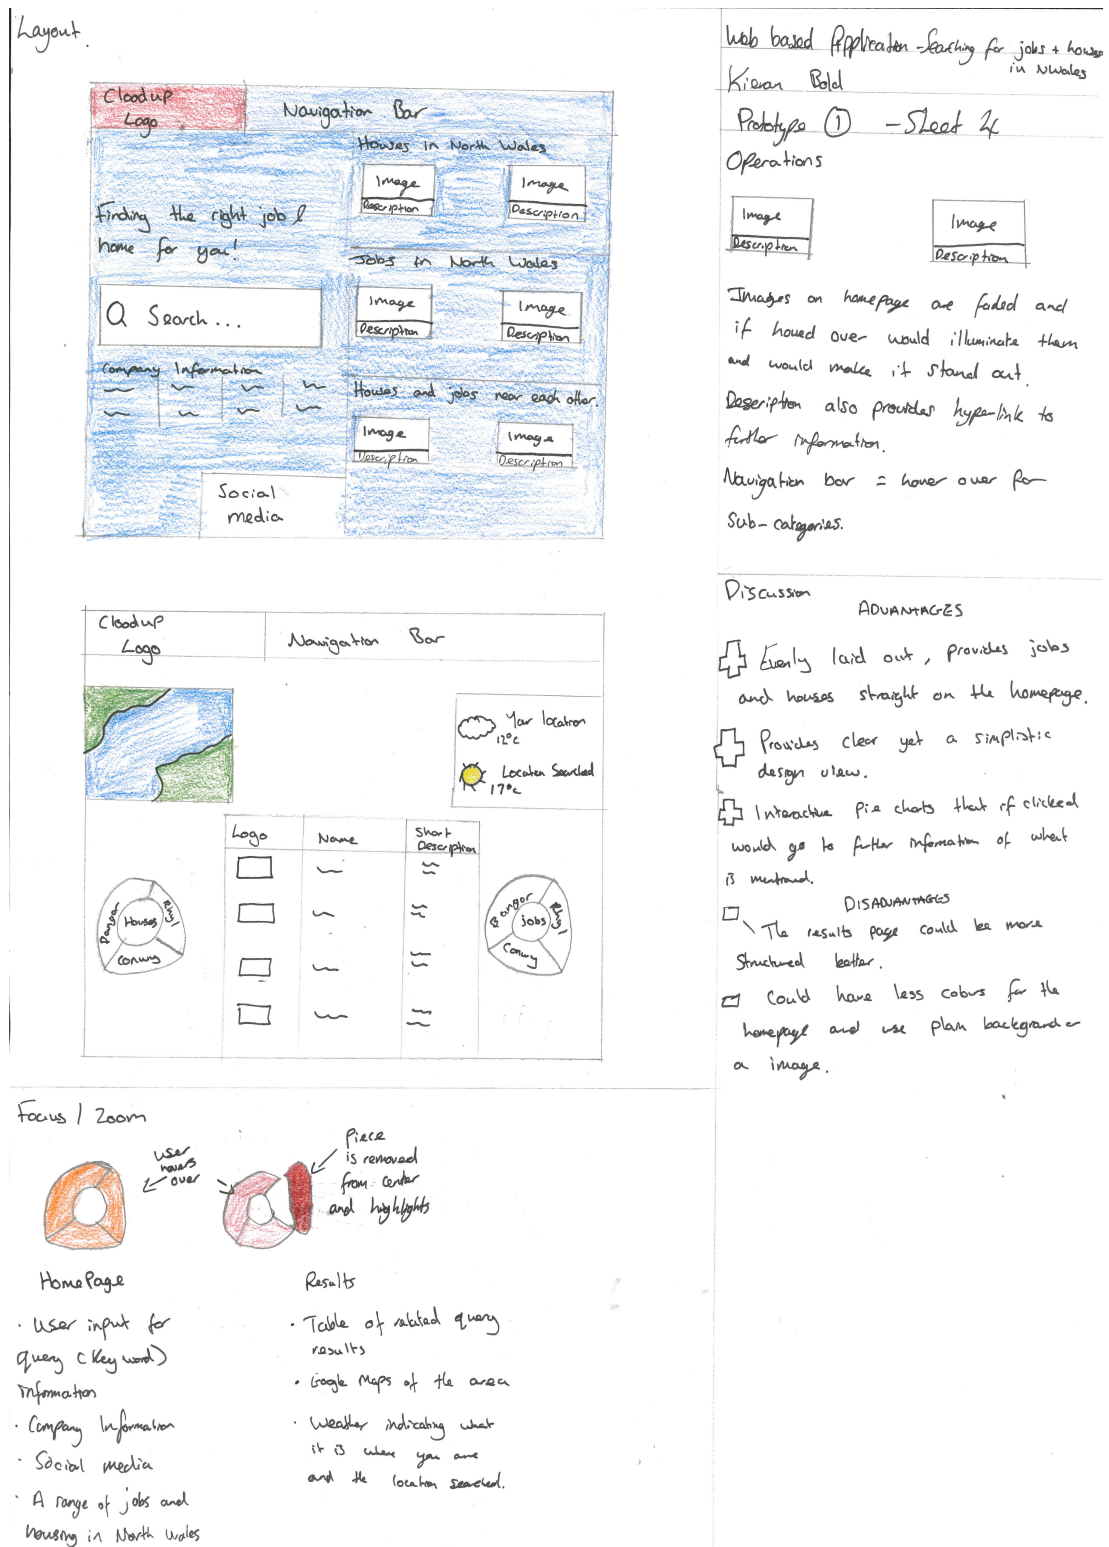 Layout.
Cloodup
Logo
Navigation Bar
Houses in North Wales
Image
Description
Image
Description
Finding the right job &
home for you!
Jobs in North Wales
Search...
Image
Description
Image
Description
Company Information
Houses and jobs near each other.
Image
Description
Image
Description
Social
media
Cloodup
Logo
Navigation Bar
Your location
12°c
Location Searched
17°c
Logo
Name
Short
Description
Houses
Bangor
Rhyl
Conwy
jobs
Bangor
Rhyl
Conwy
Focus / Zoom
User
hovers
over
Piece
is removed
from center
and highlights
HomePage
· User input for
query (Key word)
information
· Company Information
· Social media
· A range of jobs and
housing in North Wales
Results
· Table of related query
results
· Google Maps of the area
· Weather indicating what
it is where you are
and the location searched.
Web based Application - Searching for jobs + houses
in NWales
Kieran Bold
Prototype 1 - Sheet 4
Operations
Image
Description
Image
Description
Images on homepage are faded and
if hoved over would illuminate them
and would make it stand out.
Description also provides hyperlink to
further information.
Navigation bar = hover over for
Sub-categories.
Discussion
ADVANTAGES
Evenly laid out, provides jobs
and houses straight on the homepage.
Provides clear yet a simplistic
design view.
Interactive pie charts that if clicked
would go to further information of what
is mentioned.
DISADVANTAGES
The results page could be more
structured better.
Could have less colours for the
homepage and use plain background or
a image.